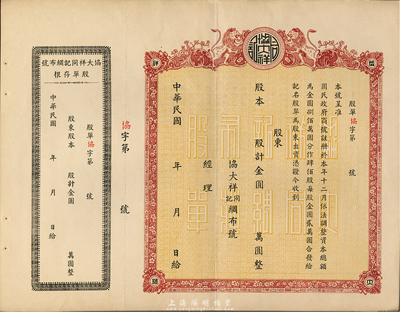 股單 協字第 號
本號呈准
國民政府頒號註冊於本年十二月依法調整資本總額
為金圓捌佰萬圓分作肆佰股每股金圓貳萬圓合發給
記名股單為股東出資憑證今收到
股東
股本 股計金圓 萬圓整
協大祥同記綢布號
經理
中華民國 年 月 日給
協字第 號
協大祥同記綢布號
股單存根
股單協字第 號
股東
股本 股計金圓 萬圓整
中華民國 年 月 日給